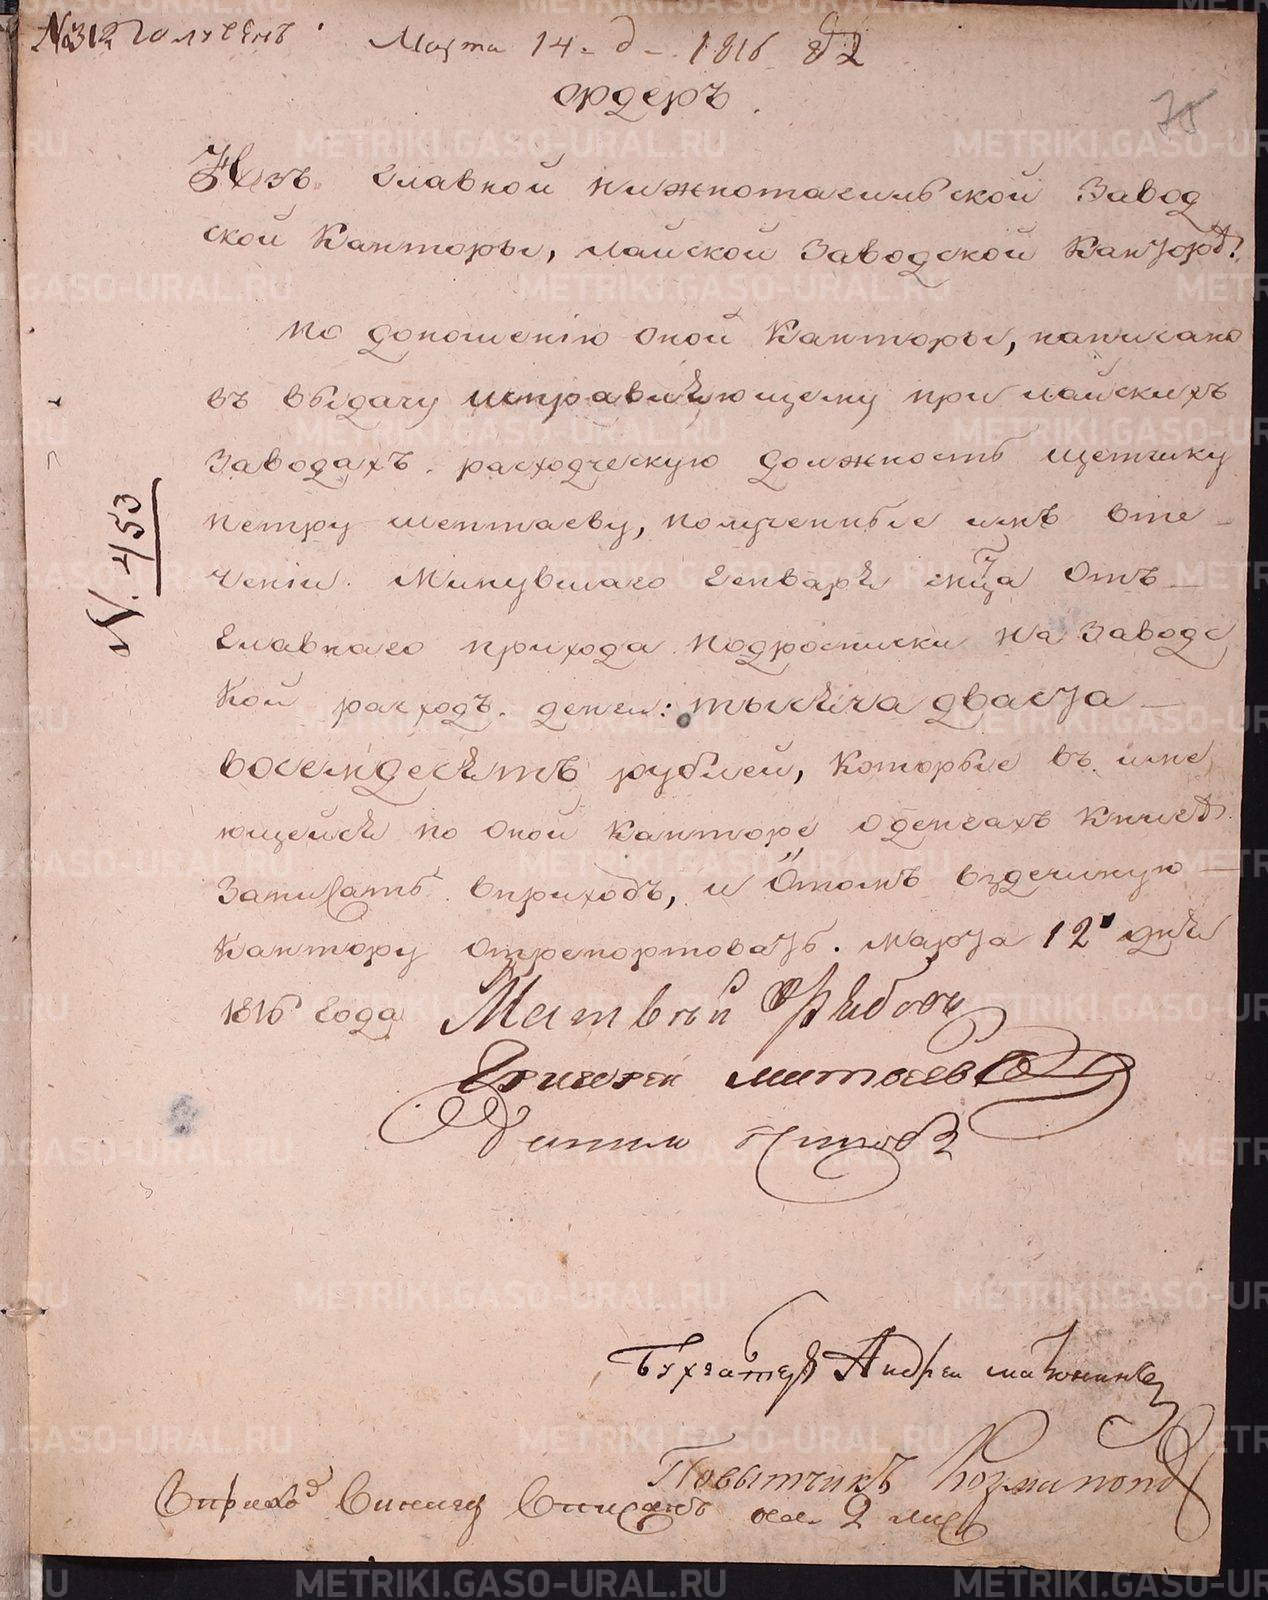 № 312 Полученъ Марта 14 д 1816 г
75
Ордеръ.
Изъ Главной Нижнотагильской Завод
ской Канторы, Лайской Заводской Канторѣ.
По доношенію оной Канторы, написано
въ выдачу исправляющему при Лайскихъ
Заводахъ расходческую должность щетчику
Петру Шептаеву, полученныѣ имъ вте
ченіи Минувшаго Генваря мца отъ
Главнаго прихода подросписки на Заводс
кой расходъ денги: тысяча двасти
восемдесятъ рублей, которые въ име
ющейся по оной канторе оденгахъ книгѣ
Записать вприходъ, и отомъ вздешнюю
Кантору отрепортовать. Марта 12 дня
1816 года
№ 453
Матвѣй Рябовъ
Григорей Матвеевъ
Данило
Бухгалтеръ Андрей Матюнинъ
Повытчикъ Козма Попов
Вприход вкнигу вписанъ на 2 лис